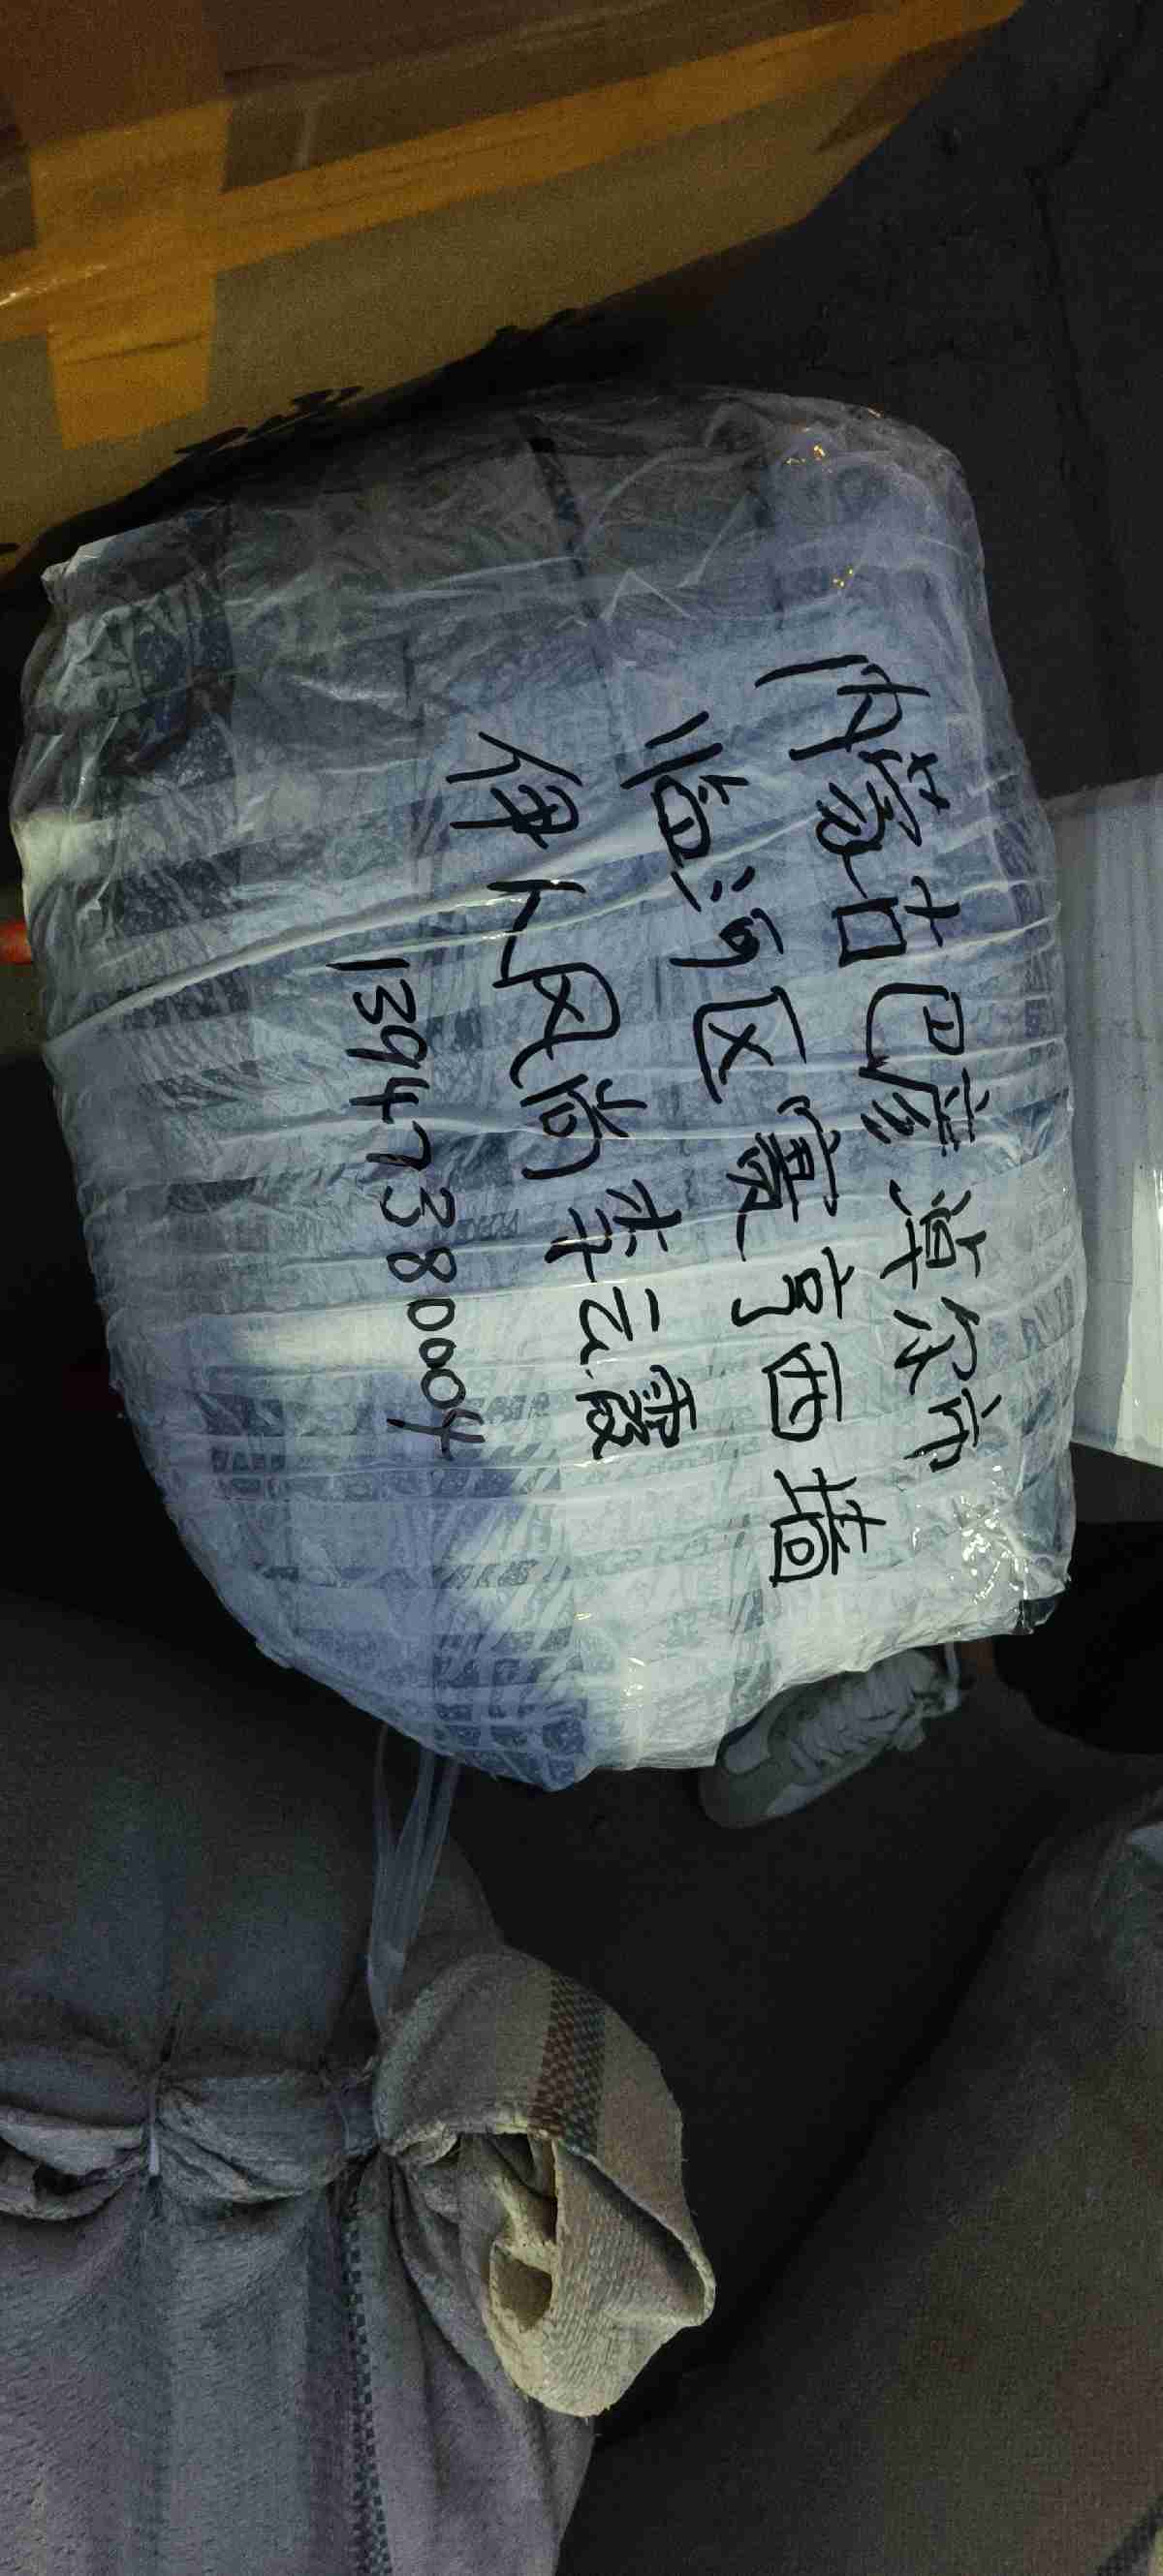 内蒙古巴彦淖尔市
临河区寰亨西墙
伊人风尚李云霞
13947380004